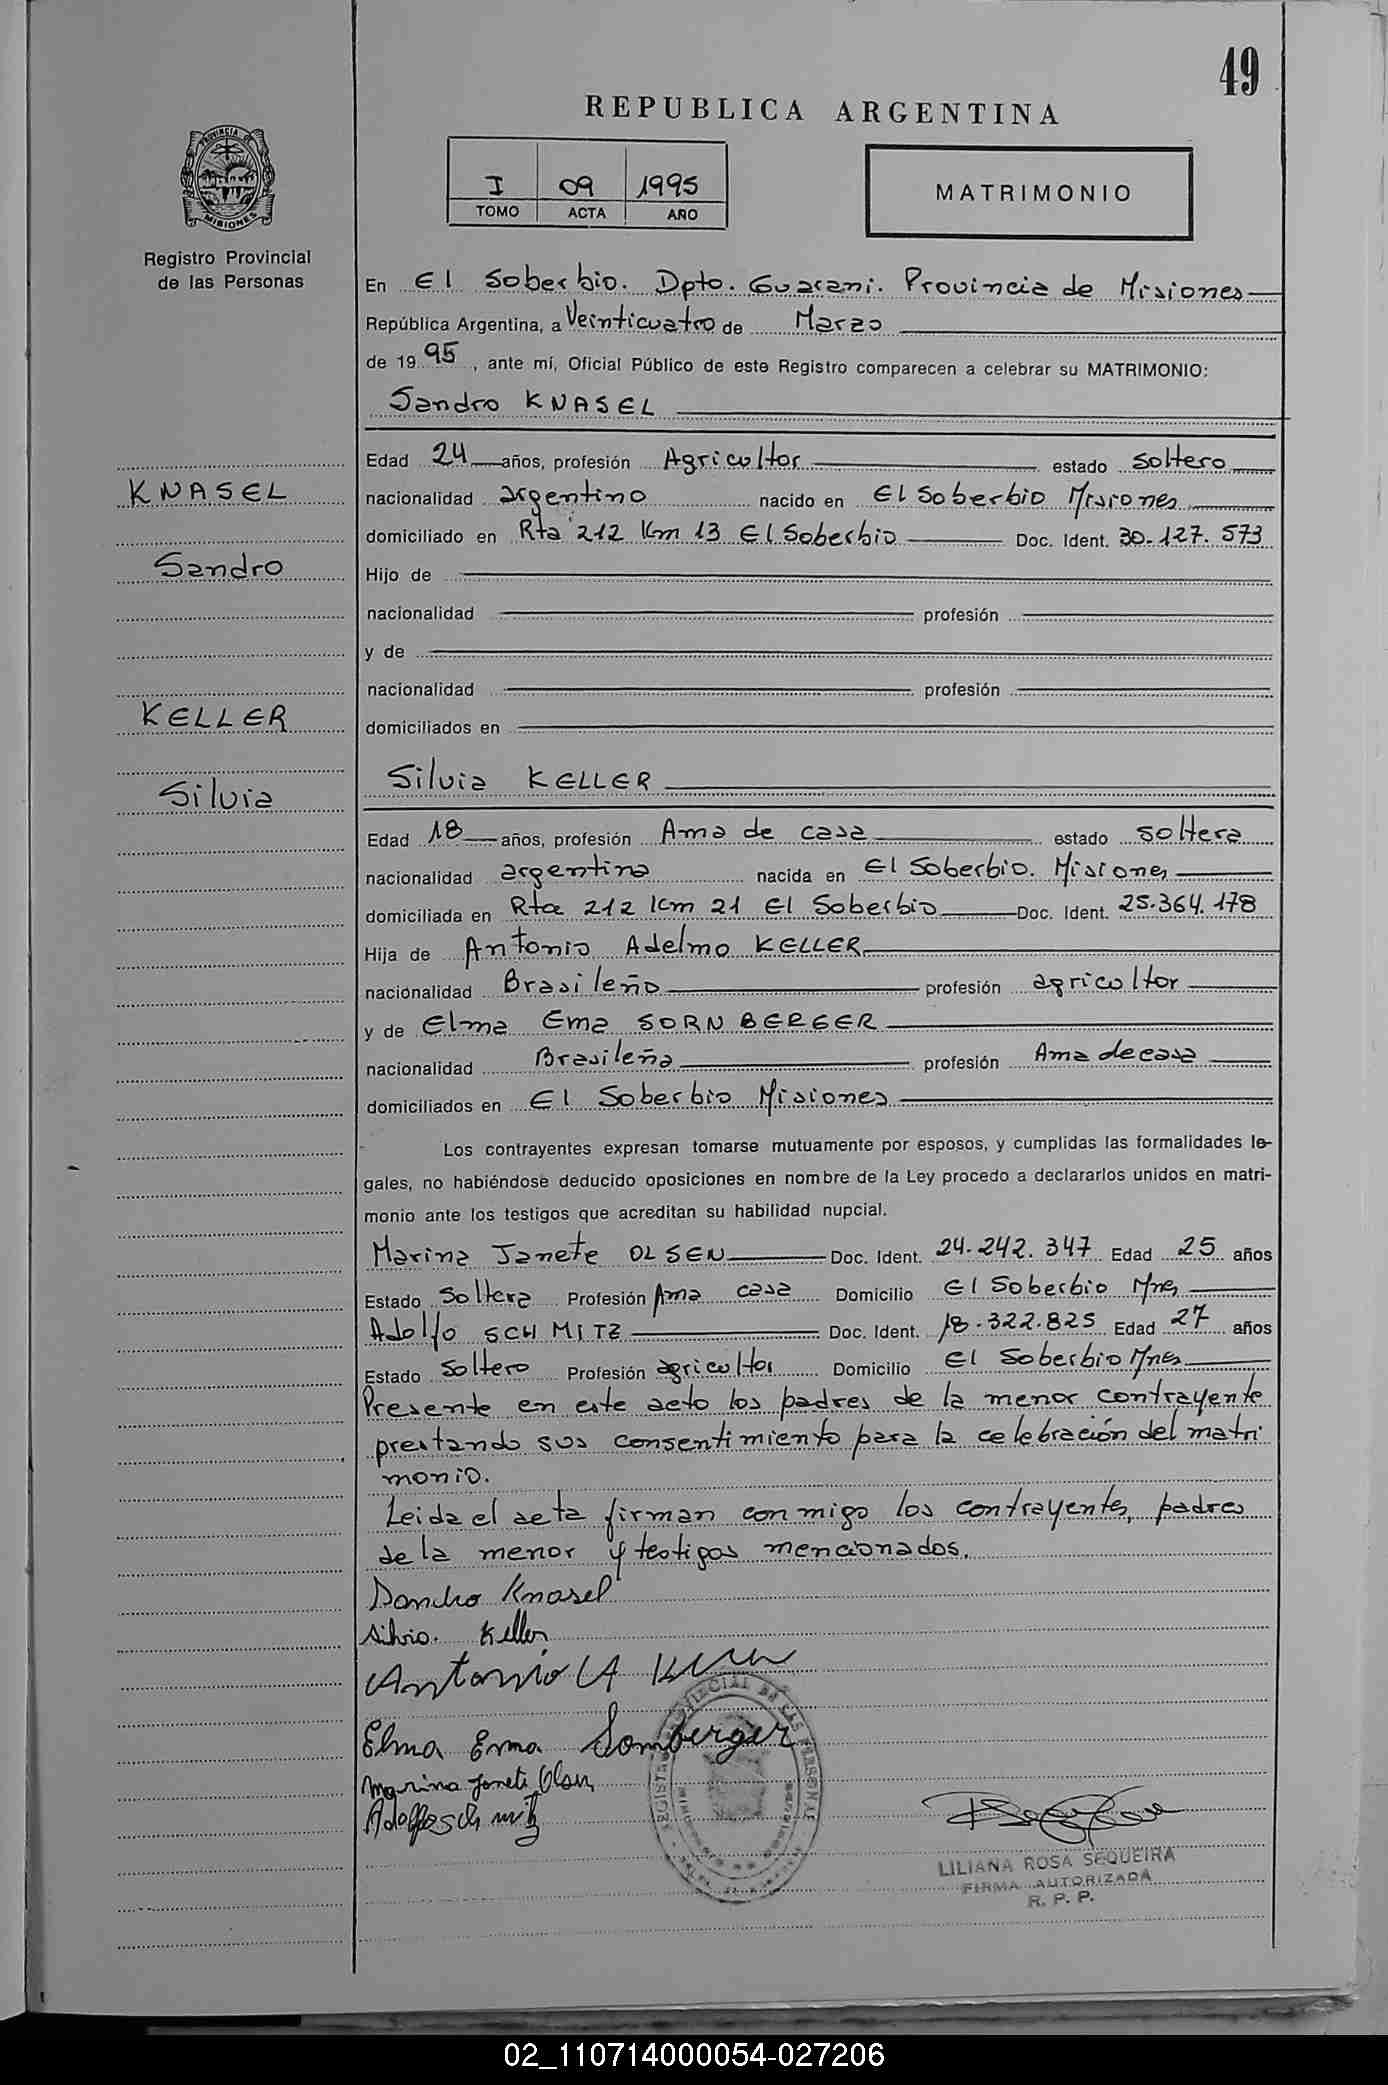 49
REPUBLICA ARGENTINA
I 09 1995
TOMO ACTA AÑO
MATRIMONIO
PROVINCIA DE
MISIONES
Registro Provincial
de las Personas
En El Soberbio. Dpto. Guarani. Provincia de Misiones
República Argentina, a Veinticuatro de Marzo
de 19 95, ante mí, Oficial Público de este Registro comparecen a celebrar su MATRIMONIO:
Sandro KNASEL
Edad 24 años, profesión Agricultor estado Soltero
KNASEL
nacionalidad argentino nacido en El Soberbio Misiones
domiciliado en Rta 212 Km 13 El Soberbio Doc. Ident. 30.127.573
Sandro
Hijo de
nacionalidad profesión
y de
nacionalidad profesión
KELLER
domiciliados en
Silvia KELLER
Silvia
Edad 18 años, profesión Ama de casa estado soltera
nacionalidad argentina nacida en El Soberbio. Misiones
domiciliada en Rta 212 Km 21 El Soberbio Doc. Ident. 25.364.178
Hija de Antonio Adelmo KELLER
nacionalidad Brasileño profesión agricultor
y de Elma Ema SORNBERGER
nacionalidad Brasileña profesión Ama de casa
domiciliados en El Soberbio Misiones
Los contrayentes expresan tomarse mutuamente por esposos, y cumplidas las formalidades le-
gales, no habiéndose deducido oposiciones en nombre de la Ley procedo a declararlos unidos en matri-
monio ante los testigos que acreditan su habilidad nupcial.
Marina Janete OLSEN Doc. Ident. 24.242.347 Edad 25 años
Estado Soltera Profesión Ama casa Domicilio El Soberbio Mnes
Adolfo SCHMITZ Doc. Ident. 18.322.825 Edad 27 años
Estado Soltero Profesión agricultor Domicilio El Soberbio Mnes
Presente en este acto los padres de la menor contrayente
prestando sus consentimiento para la celebración del matri
monio.
Leida el acta firman conmigo los contrayentes, padres
de la menor y testigos mencionados.
Sandro Knasel
Silvia Keller
Antonio A Keller
Elma Ema Sornberger
Marina Janete Olsen
Adolfo Schmitz
LILIANA ROSA SEQUEIRA
FIRMA AUTORIZADA
R. P. P.
02_110714000054-027206